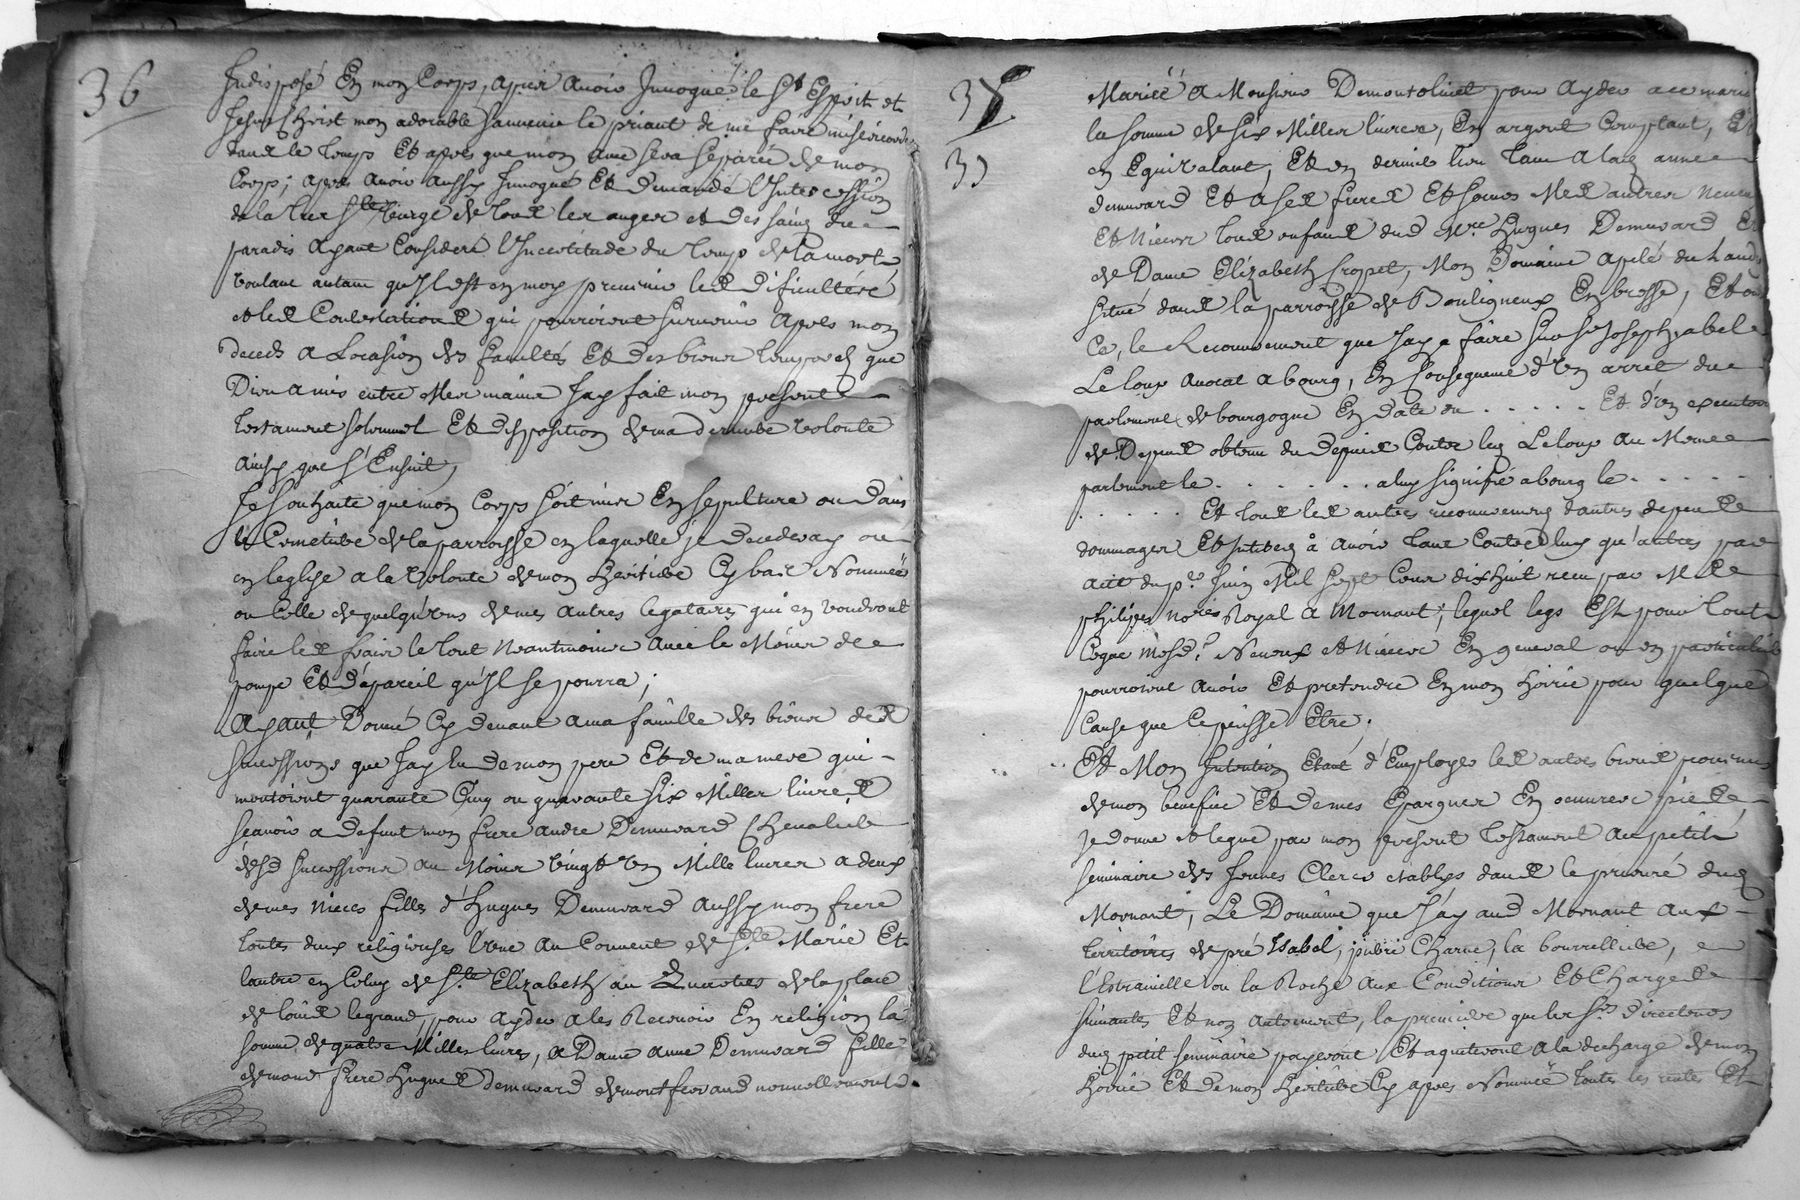 36
Indisposé En mon Corps, apres avoir Invoqué le St Esprit et
Jesus Christ mon adorable sauveur le priant de me faire misericorde
dans le temps Et apres que mon ame sera separée de mon
Corps; apres avoir aussy Invoqué Et demandé l'Intercession
de la tres Ste Vierge de tous les anges et des saincts du
paradis ayant Consideré l'Incertitude du temps de la mort,
voulant autant qu'Il est en moy prevenir les dificultés
et les Contestations qui pourroient survenir apres mon
deceds a Locasion des facultés Et des biens temporels que
Dieu a mis entre Mes mains Jay fait mon present
testament solemnel Et disposition de ma derniere volonté
ainsy que s'Ensuit,
Je souhaite que mon Corps soit mis En sepulture ou dans
le Cimetiere de la parroisse en laquelle je decederay ou
en leglise a la volonté de mon heritiere Cy bas Nommée
ou Celle de quelqu'uns de mes autres legataires qui en voudront
faire les frais le tout Neantmoins avec le Moins de
pompe Et d'apareil qu'Il se pourra;
Ayant Donné Cy devant a ma famille des biens des
successions que Jay Eu de mon pere Et de ma mere qui
montoient quarante Cinq ou quarante six Milles livres
sçavoir a defunt mon frere andre Demurard Chevalier
desd successions au Moins vingt un Mille livres a deux
de mes nieces filles d'hugues Demurard Aussy mon frere
toutes deux religieuses l'une au Convent de Ste Marie Et
lautre en Celuy de Ste Elizabeth au de la place
de louis legrand, pour ayder a les Recevoir En religion la
somme de quatre Milles livres, a Dame anne Demurard fille
de mond frere hugues demurard de montferrand nouvellement
38
39
Mariée a Monsieur Demontolivet pour ayder
la somme de six Milles livres, En argent Comptant, Et
en Equivalant, Et en dernier lieu tant a lad anne
demurard Et a ses freres Et soeurs Mes autres neveux
Et Nieces tous enfants dud Mre Hugues Demurard Et
de Dame Elizabeth Croppet, Mon Domaine apelé
situé dans la parroisse de Bouligneux En bresse, Et
Ce, le Recouvrement que Jay a faire sur Sr Joseph abel
Leloup avocat a bourg, En Consequence d'Un arret du
parlement de bourgogne En date du . . . . . Et d'Un executoire
de Depens obtenu du depuis Contre luy Leloup au Meme
parlement le . . . . . . a luy signifié a bourg le . . . . .
. . . . . Et tous les autres recouvrements dautres depens
dommages Et Interets à Avoir tant Contre luy qu'autres par
acte du pr. Juin Mil sept Cens dix huit receu par Me
philipes nore Royal a Mornant; lequel legs Est pour tout
Ceque mesd. Neveux et Nieces En general ou en particulier
pourroient avoir Et pretendre En mon hoirie pour quelque
Cause que Ce puisse Etre;
Et Mon Intention Etant d'Employer les autres biens
de mon benefice Et de mes Epargnes En oeuvres
Je donne et legue par mon present testament au petit
seminaire des Jeunes Clercs etablys dans le prieuré dud
Mornant, Le Domaine que J'ay aud Mornant aux
territoires de pré Isabel, Charve, la bourrelliere,
l'Estrainelle ou la Roche aux Conditions Et Charges
suivantes Et non autrement, la premiere que les Srs directeurs
dud petit seminaire payeront Et aquiteront a la decharge de mon
hoirie Et de mon heritiere Cy apres Nommée toutes les rentes Et